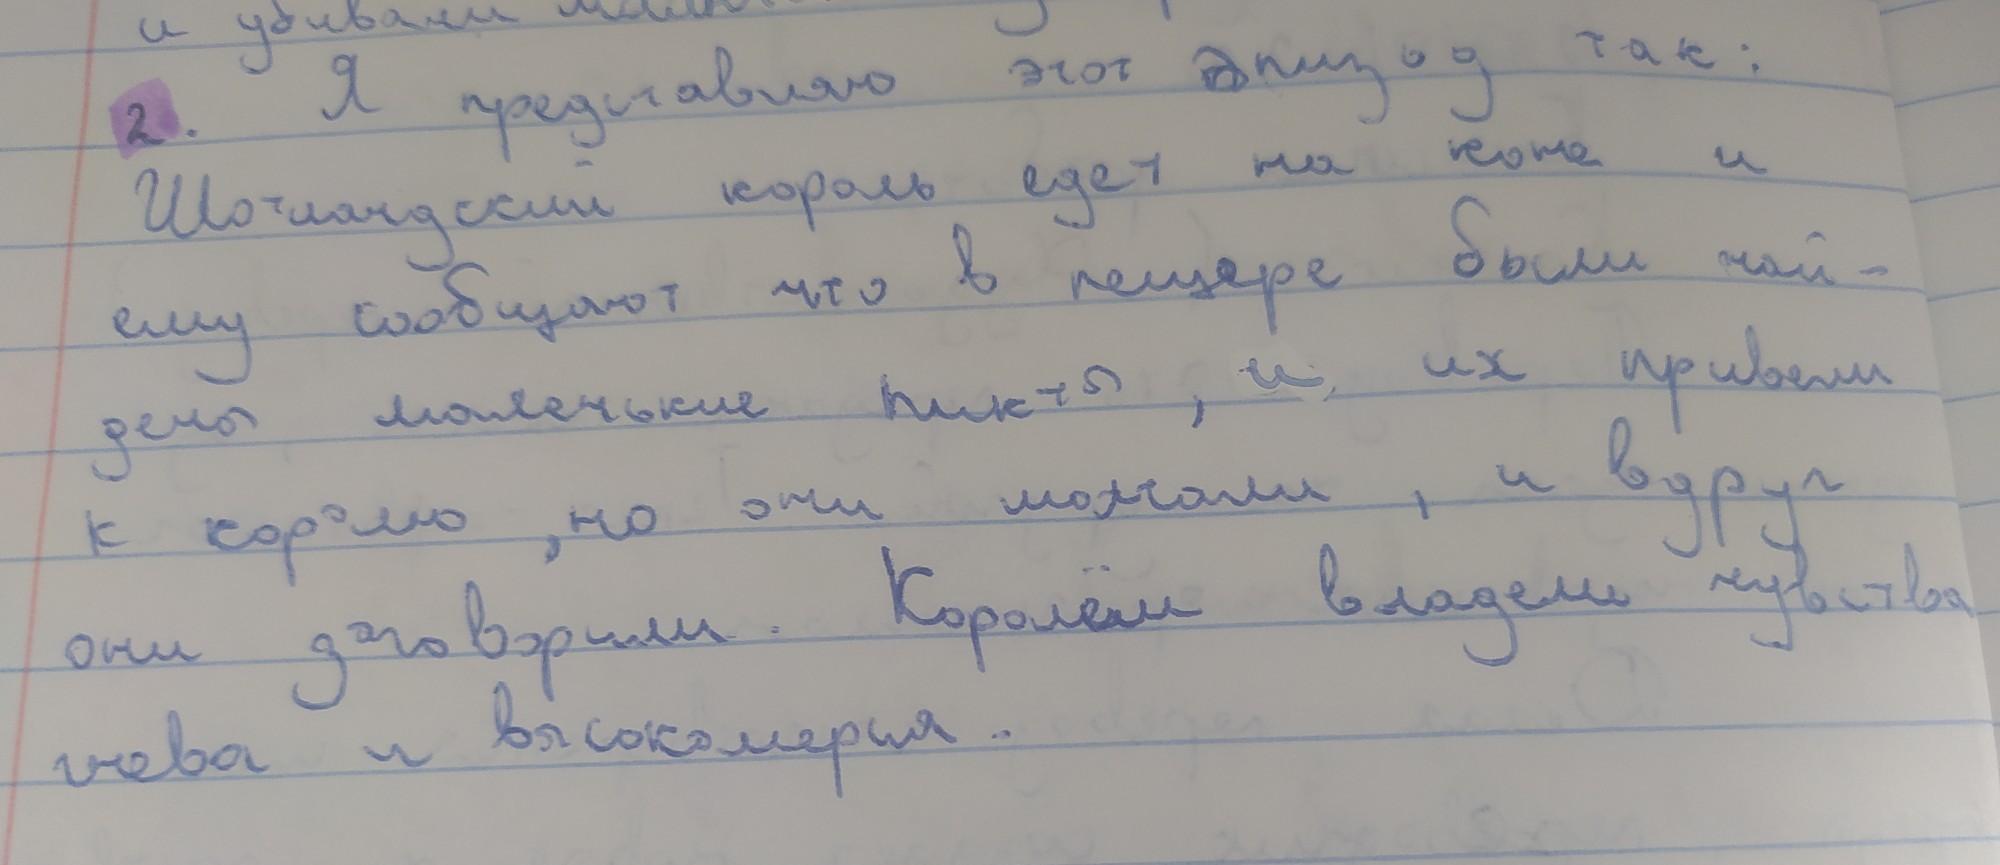 и убивали
2. Я представляю этот эпизод так:
Шотландский король едет на коне и
ему сообщают что в пещере были най-
дены маленькие пикты, и их привели
к королю, но они молчали, и вдруг
они заговорили. Королём владели чувства
гнева и высокомерия..